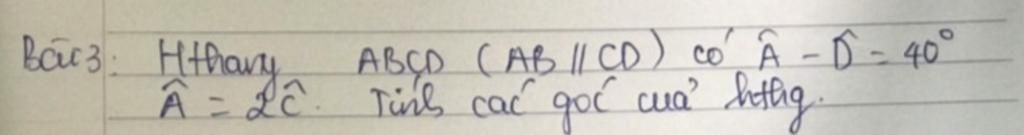 Bài 3: Hthang ABCD (AB // CD) có Â - D̂ = 40°
Â = 2Ĉ. Tính các góc của hthg.